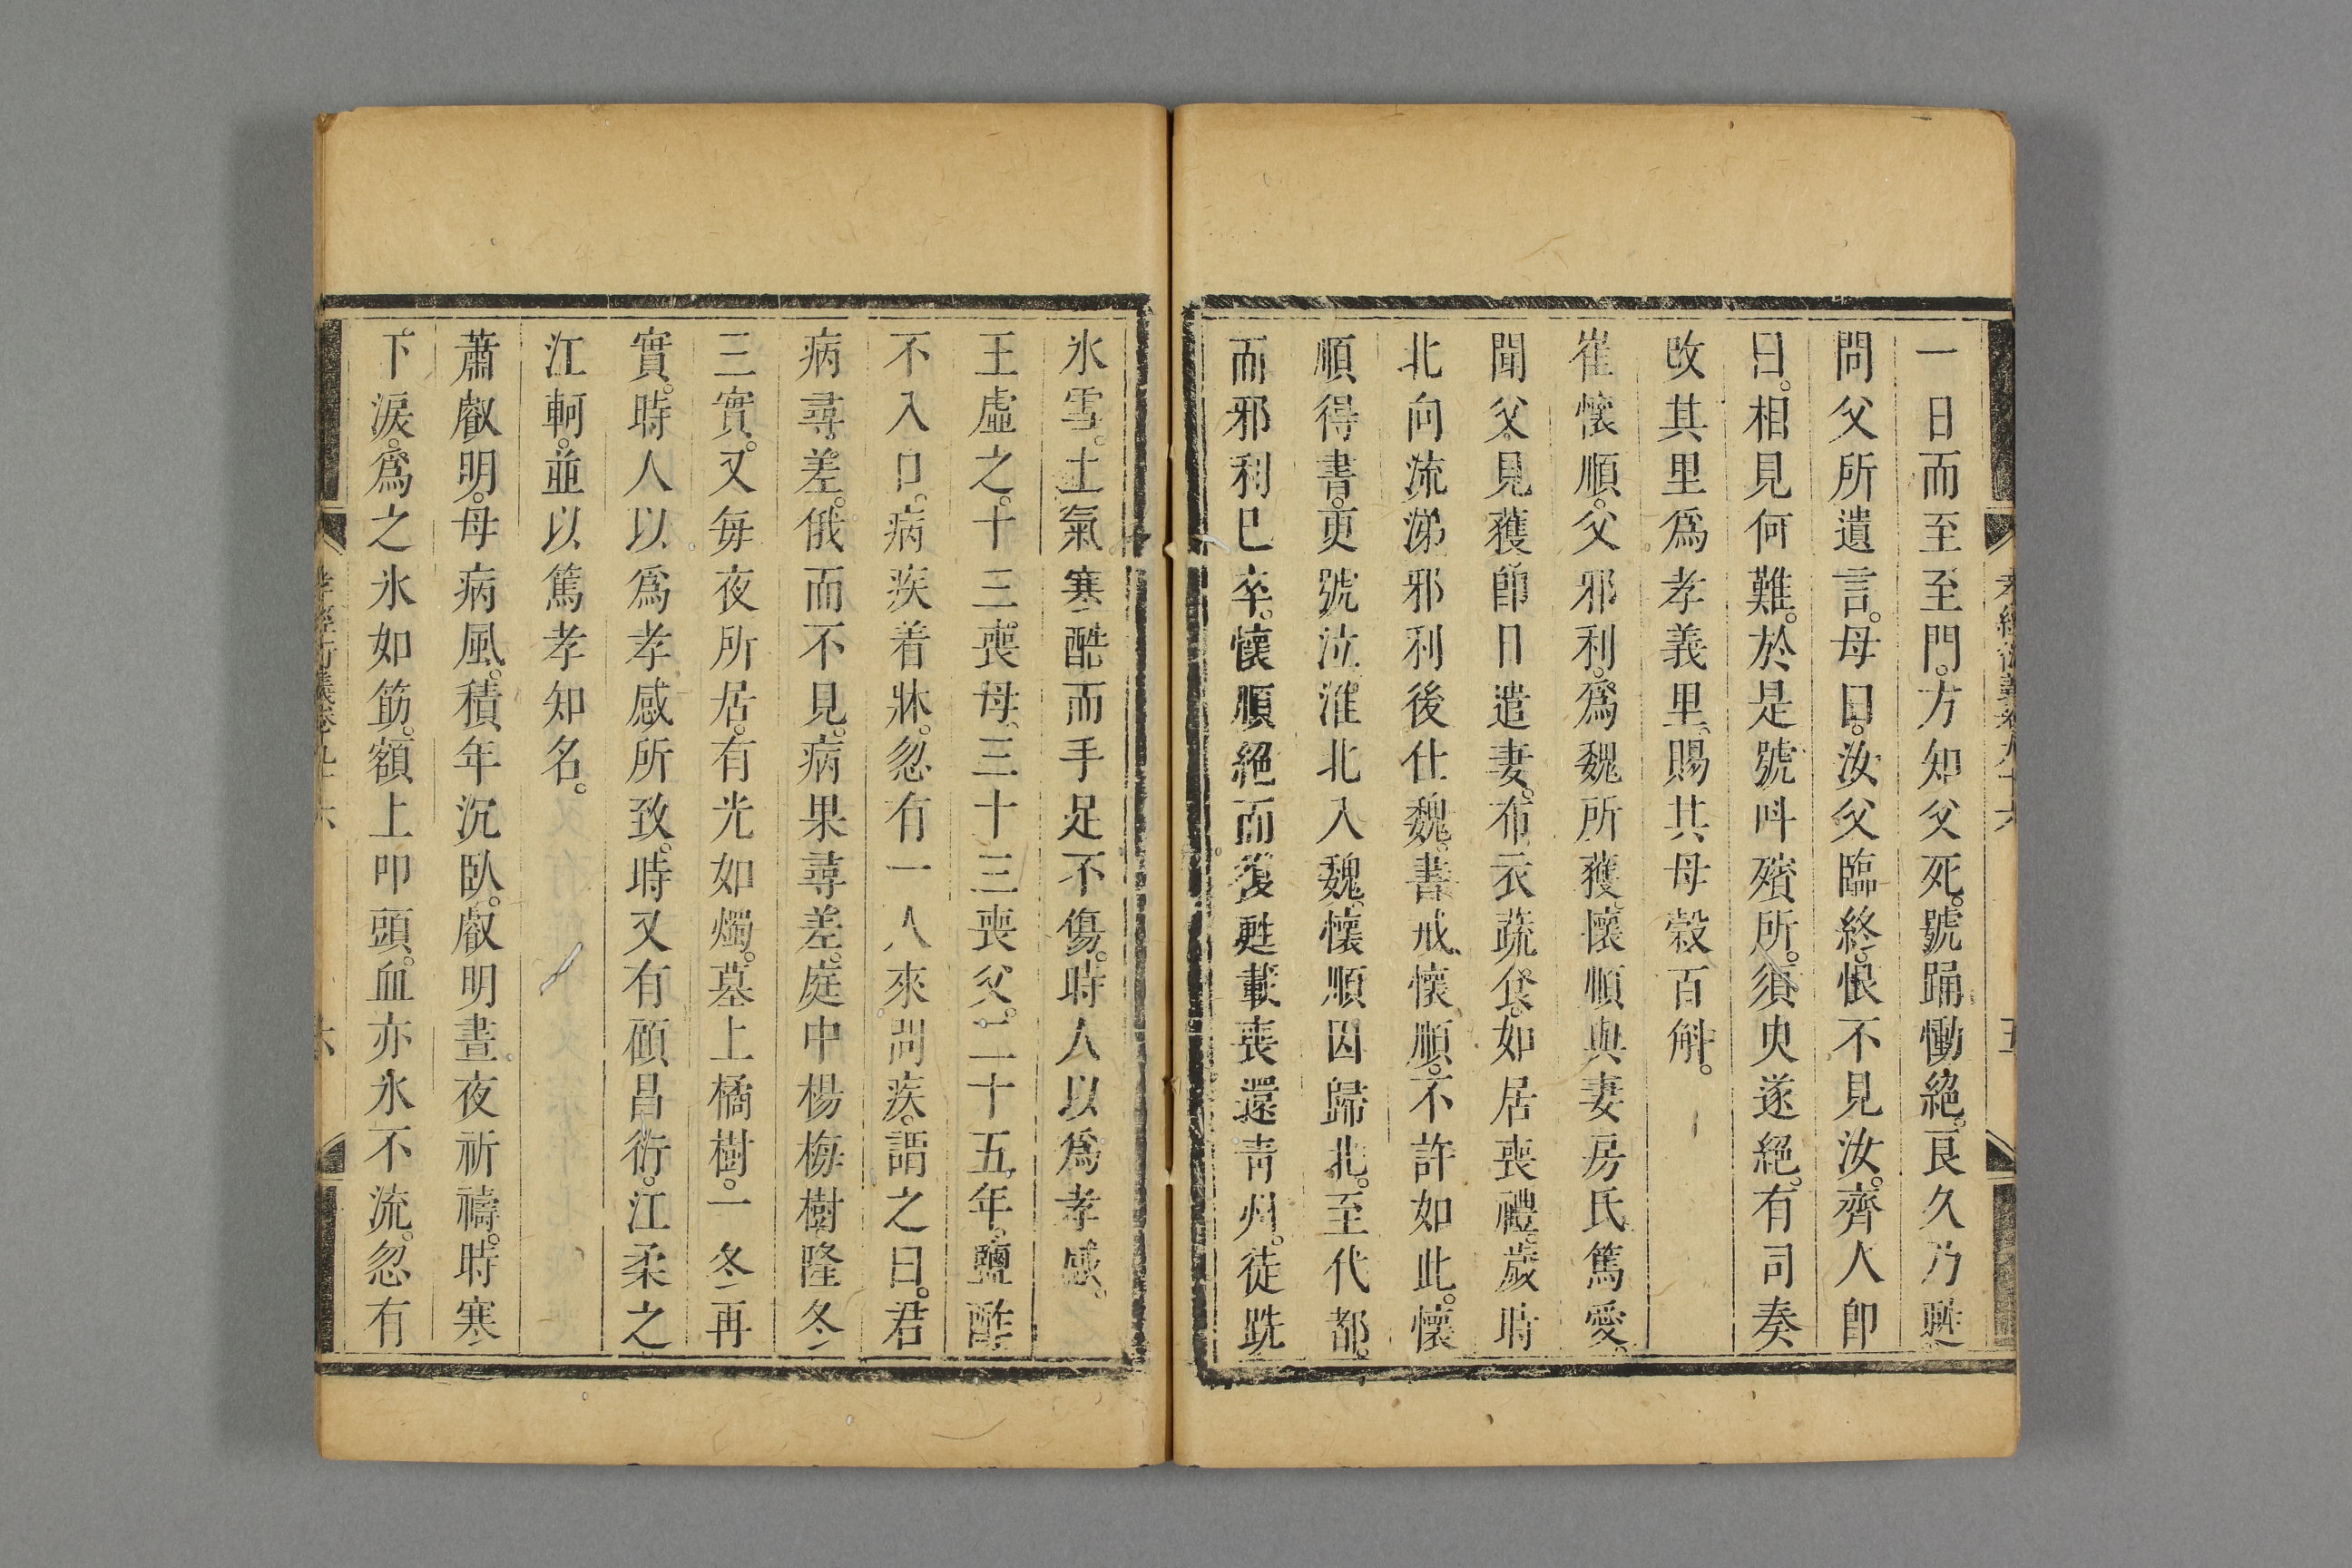 一日而至至門。方知父死。號踊慟絶。良久乃甦
問父所遺言。母曰。汝父臨終。恨不見汝。齊人卽
曰。相見何難。於是號呌殯所。須臾遂絶。有司奏
改其里爲孝義里。賜其母穀百斛。
崔懷順。父邪利。爲魏所獲。懷順與妻房氏篤愛。
聞父見獲。卽日遣妻。布衣蔬食。如居喪禮。歲時
北向流涕。邪利後仕魏。書戒懷順。不許如此。懷
順得書。更號泣。淮北入魏。懷順因歸北。至代都。
而邪利已卒。懷順絕而復甦。載喪還青州。徒跣
氷雪。土氣寒酷。而手足不傷。時人以爲孝感。
王虛之。十三喪母。三十三喪父。二十五年。鹽酢
不入口。病疾着牀。忽有一人來問疾。謂之曰。君
病尋差。俄而不見。病果尋差。庭中楊梅樹隆冬
三實。又每夜所居。有光如燭。墓上橘樹。一冬再
實。時人以爲孝感所致。時又有顧昌衍。江柔之
江軻。並以篤孝知名。
蕭叡明。母病風。積年沉臥。叡明晝夜祈禱。時寒
下淚。爲之氷如筯。額上叩頭。血亦氷不流。忽有